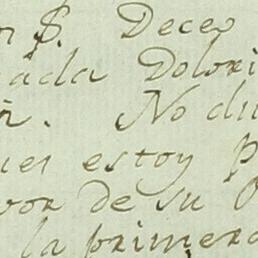 n S. Deceo
ada Dolori
n. No du
ues estoy p
vor de su O
la primera